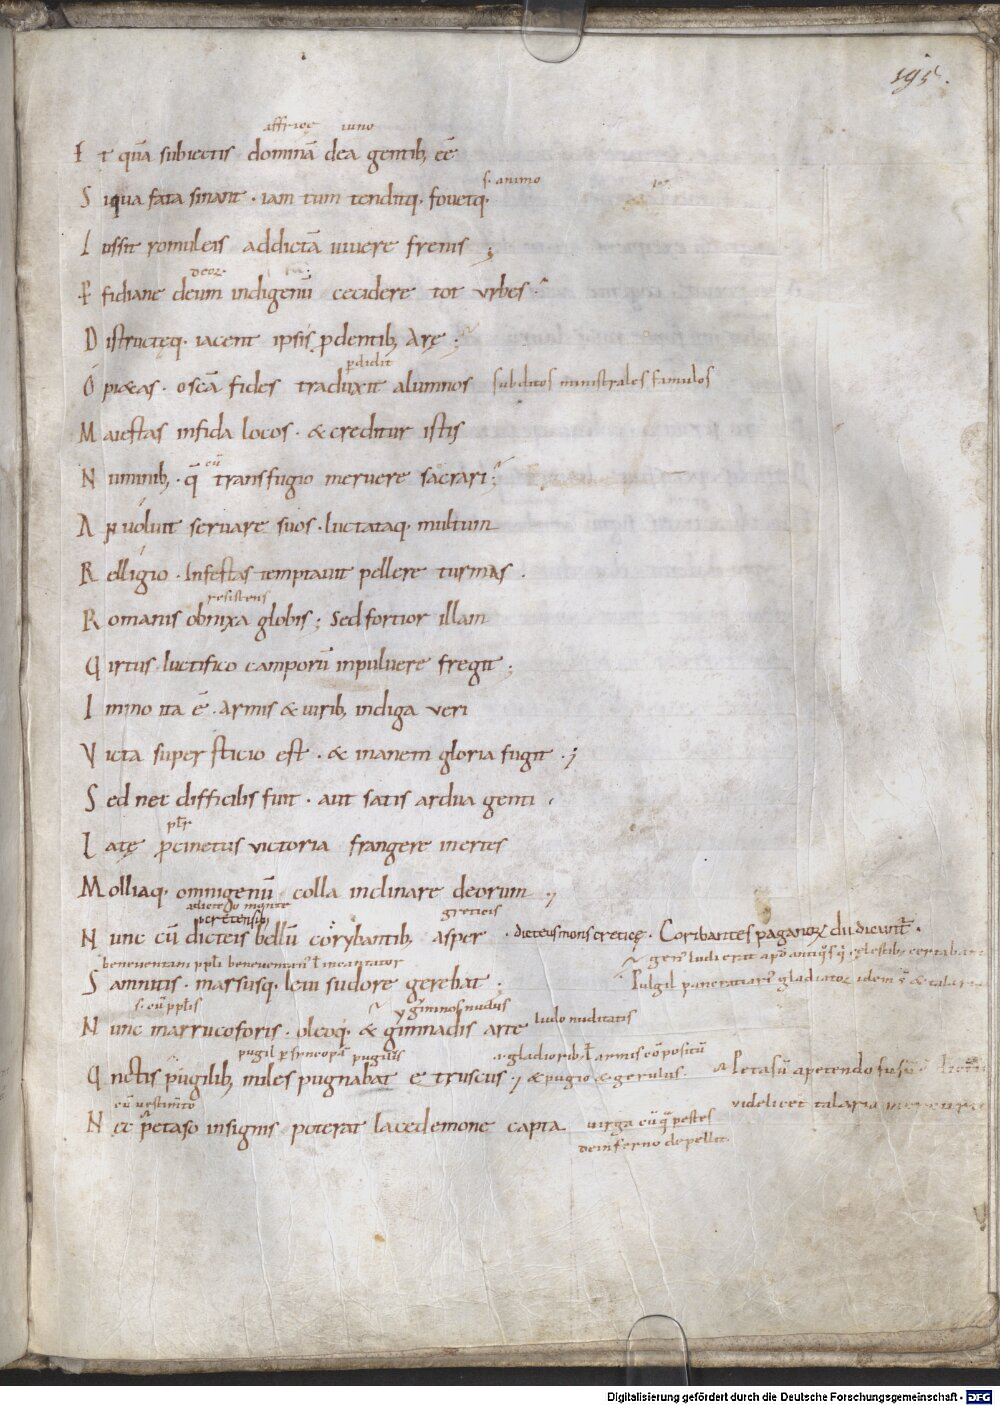 195.
affricę iuno
E t quā subiectis dominā dea gentib; eē
s. animo
S iqua fata sinant · iam tum tenditq. fovetq.
I ussit romuleis addictā vivere frenis ;
deoꝝ
P fidiane deum indigenū cecidere tot vrbes ·
D istructęq. iacent ipsis pdentib; Arę ;
pdidit
O piaetas · oscā fides traduxit alumnos subditos ministrales famulos
M aiestas infida locos · & creditur istis
eū
N uminib; · q̄ transfugio meruere sacrari ;
A n voluit servare suos · luctataq. multum
R elligio · Infestas temptavit pellere turmas .
resistens
R omanis obnixa globis ; Sed fortior illam
Q irtus luctifico camporū inpulvere fregit ;
I mmo ita ē · Armis & virib; indiga veri
V icta superstitio est · & inanem gloria fugit . ;
S ed nec difficilis fuit · aut satis ardva genti ,
L atę pcinctus victoria frangere inertes
M olliaq. omnigenū colla inclinare deorum . ;
cretensib; greticis
N unc cū dicteis bellū corybantib; asper · dicteus mons creticę · Coribantes paganoꝝ dii dicunt̄ ·
beneventam ppl̄i beneventani ł incantator
S amnitis · marsusq. levi sudore gerebat ;
s. cū ppl̄is gimnos nudus
N unc marrucoforis · oleoq. & gimnadis arte ludo nuditatis
pugil p syncopā pugilis gladiorib; ł armis cōpositū
Q nctis pugilib; miles pugnabat etruscus . ; & pugio & gerulus · Petasū apetendo
cū vestim̄to videlicet talaria
N ec petaso insignis poterat lacedemone capta virga cū q̄ pestes
deinferno depellit.
Digitalisierung gefördert durch die Deutsche Forschungsgemeinschaft - DFG